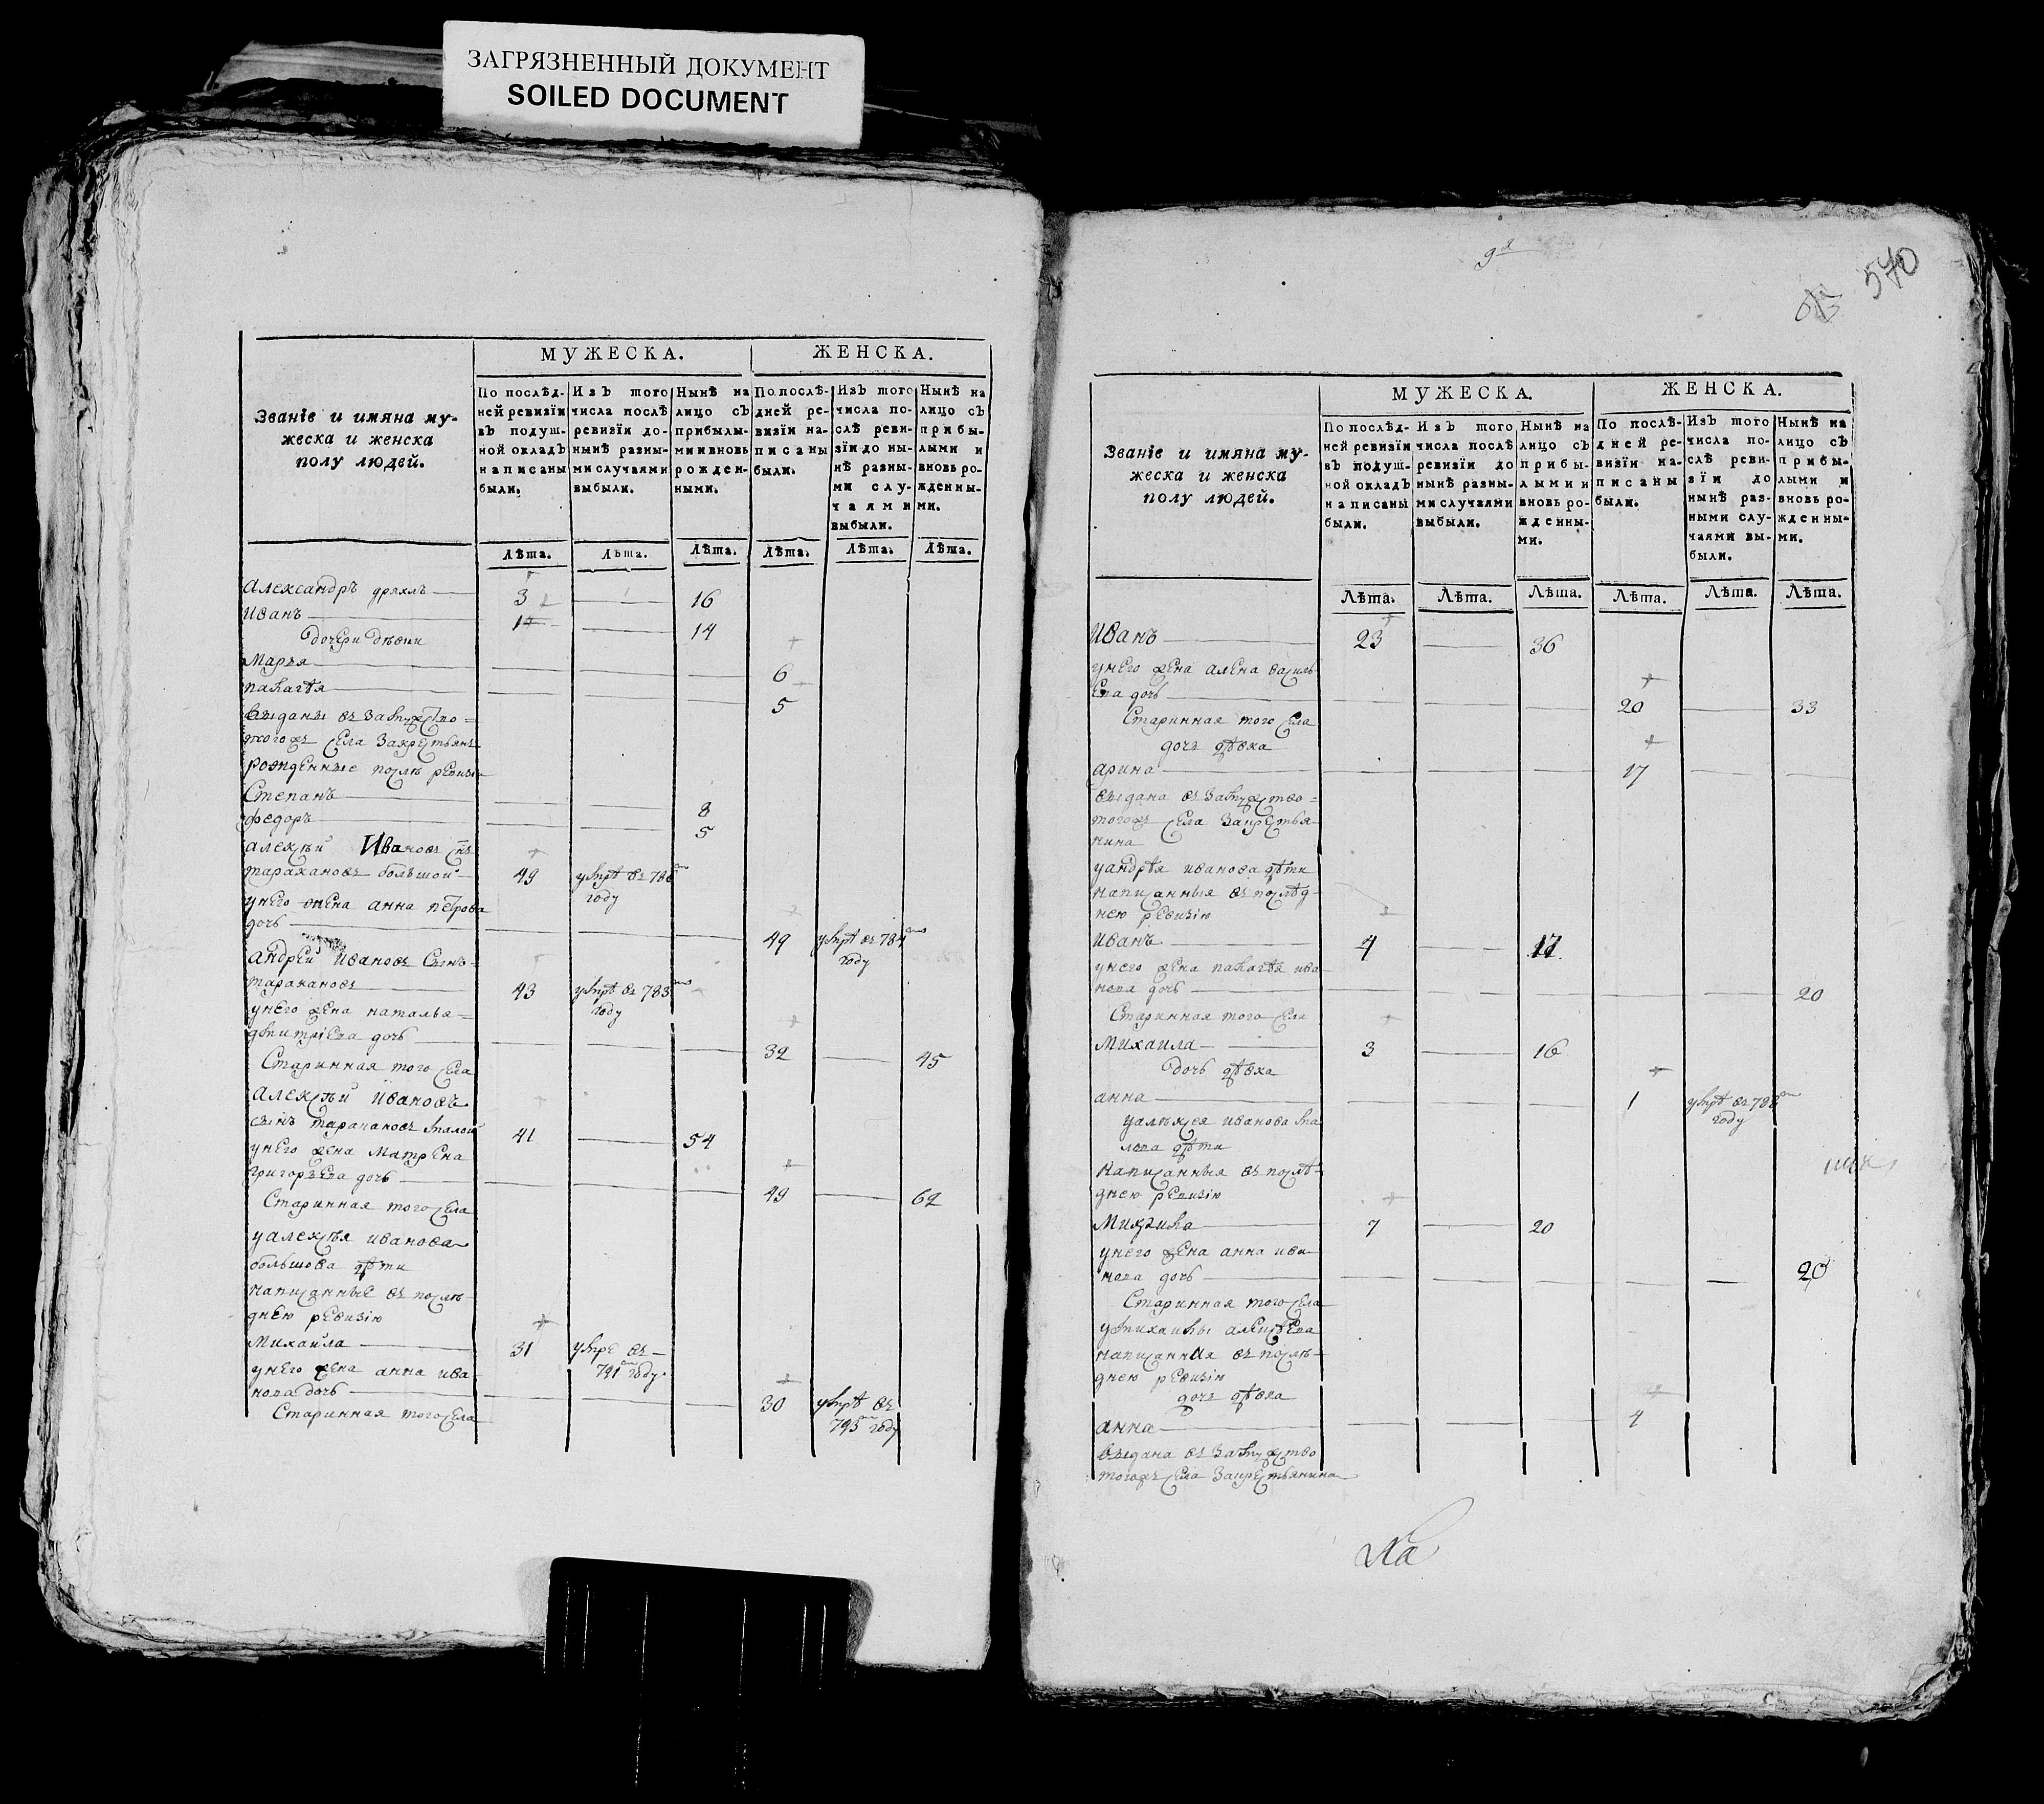 ЗАГРЯЗНЕННЫЙ ДОКУМЕНТ
SOILED DOCUMENT
МУЖЕСКА. ЖЕНСКА.
Званіе и имяна му-
жеска и женска
полу людей.
По послѣд-
ней ревизіи
въ подуш-
ной окладъ
написаны
были.
Изъ того
числа послѣ
ревизіи до-
нынѣ разны-
ми случаями
выбыли.
Нынѣ на
лицо съ
прибылы-
ми и вновь
рожден-
ными.
По послѣ-
дней ре-
визіи на-
писаны
были.
Изъ того
числа по-
слѣ реви-
зіи до ны-
нѣ разны-
ми слу-
чаями
выбыли.
Нынѣ на
лицо съ
прибы-
лыми и
вновь ро-
жденны-
ми.
Лѣта. Лѣта. Лѣта. Лѣта. Лѣта. Лѣта.
Александръ дряхлъ 3 16
Иванъ 1 14
дочери девки
Марья 6
палагѣя 5
выданы въ замужство
тогожъ села за крестьянъ
рожденные послѣ ревизіи
Степанъ 8
Федоръ 5
алексѣй Ивановъ снъ
таракановъ большой 49 умре въ 786
году
у него жена анна петрова
дочь 49 умре въ 784
году
андрей Ивановъ сынъ
таракановъ 43 умре въ 783
году
у него жена наталья
дмитріева дочь 32 45
Старинная того села
алексѣй Ивановъ
сынъ таракановъ малой 41 54
у него жена матрена
григорьева дочь 49 62
Старинная того села
у алексѣя иванова
большова дѣти
написанные въ послѣ
днею ревизію
Михайла 31 умре въ
791 году
у него жена анна ива
нова дочь 30 умре въ
793 году
Старинная того села
9я
570
МУЖЕСКА. ЖЕНСКА.
Званіе и имяна му-
жеска и женска
полу людей.
По послѣд-
ней ревизіи
въ подуш-
ной окладъ
написаны
были.
Изъ того
числа послѣ
ревизіи до
нынѣ разны-
ми случаями
выбыли.
Нынѣ на
лицо съ
прибы-
лыми и
вновь ро-
жденны-
ми.
По послѣ-
дней ре-
визіи на-
писаны
были.
Изъ того
числа по-
слѣ реви-
зіи до
нынѣ раз-
ными слу-
чаями вы-
были.
Нынѣ на
лицо съ
прибы-
лыми и
вновь ро-
жденны-
ми.
Лѣта. Лѣта. Лѣта. Лѣта. Лѣта. Лѣта.
Иванъ 23 36
у него жена алена василь
ева дочь 20 33
Старинная того села
дочь дѣвка
арина 17
выдана въ замужство
тогожъ села за крестья
нина
у андрѣя иванова дѣти
написанныя въ послѣд
нею ревизію
Иванъ 4 17
у него жена палагѣя ива
нова дочь 20
Старинная того села
Михаила 3 16
дочь дѣвка
анна 1 умре въ 788
году
у алексѣя иванова ма
лова дѣти
написанныя въ послѣ
днею ревизію
Михаила 7 20
у него жена анна ива
нова дочь 20
Старинная того села
у михаилы алексѣева
написанная въ послѣ
днею ревизію
дочь дѣвка
анна 4
выдана въ замужство
тогожъ села за крестьянина
На